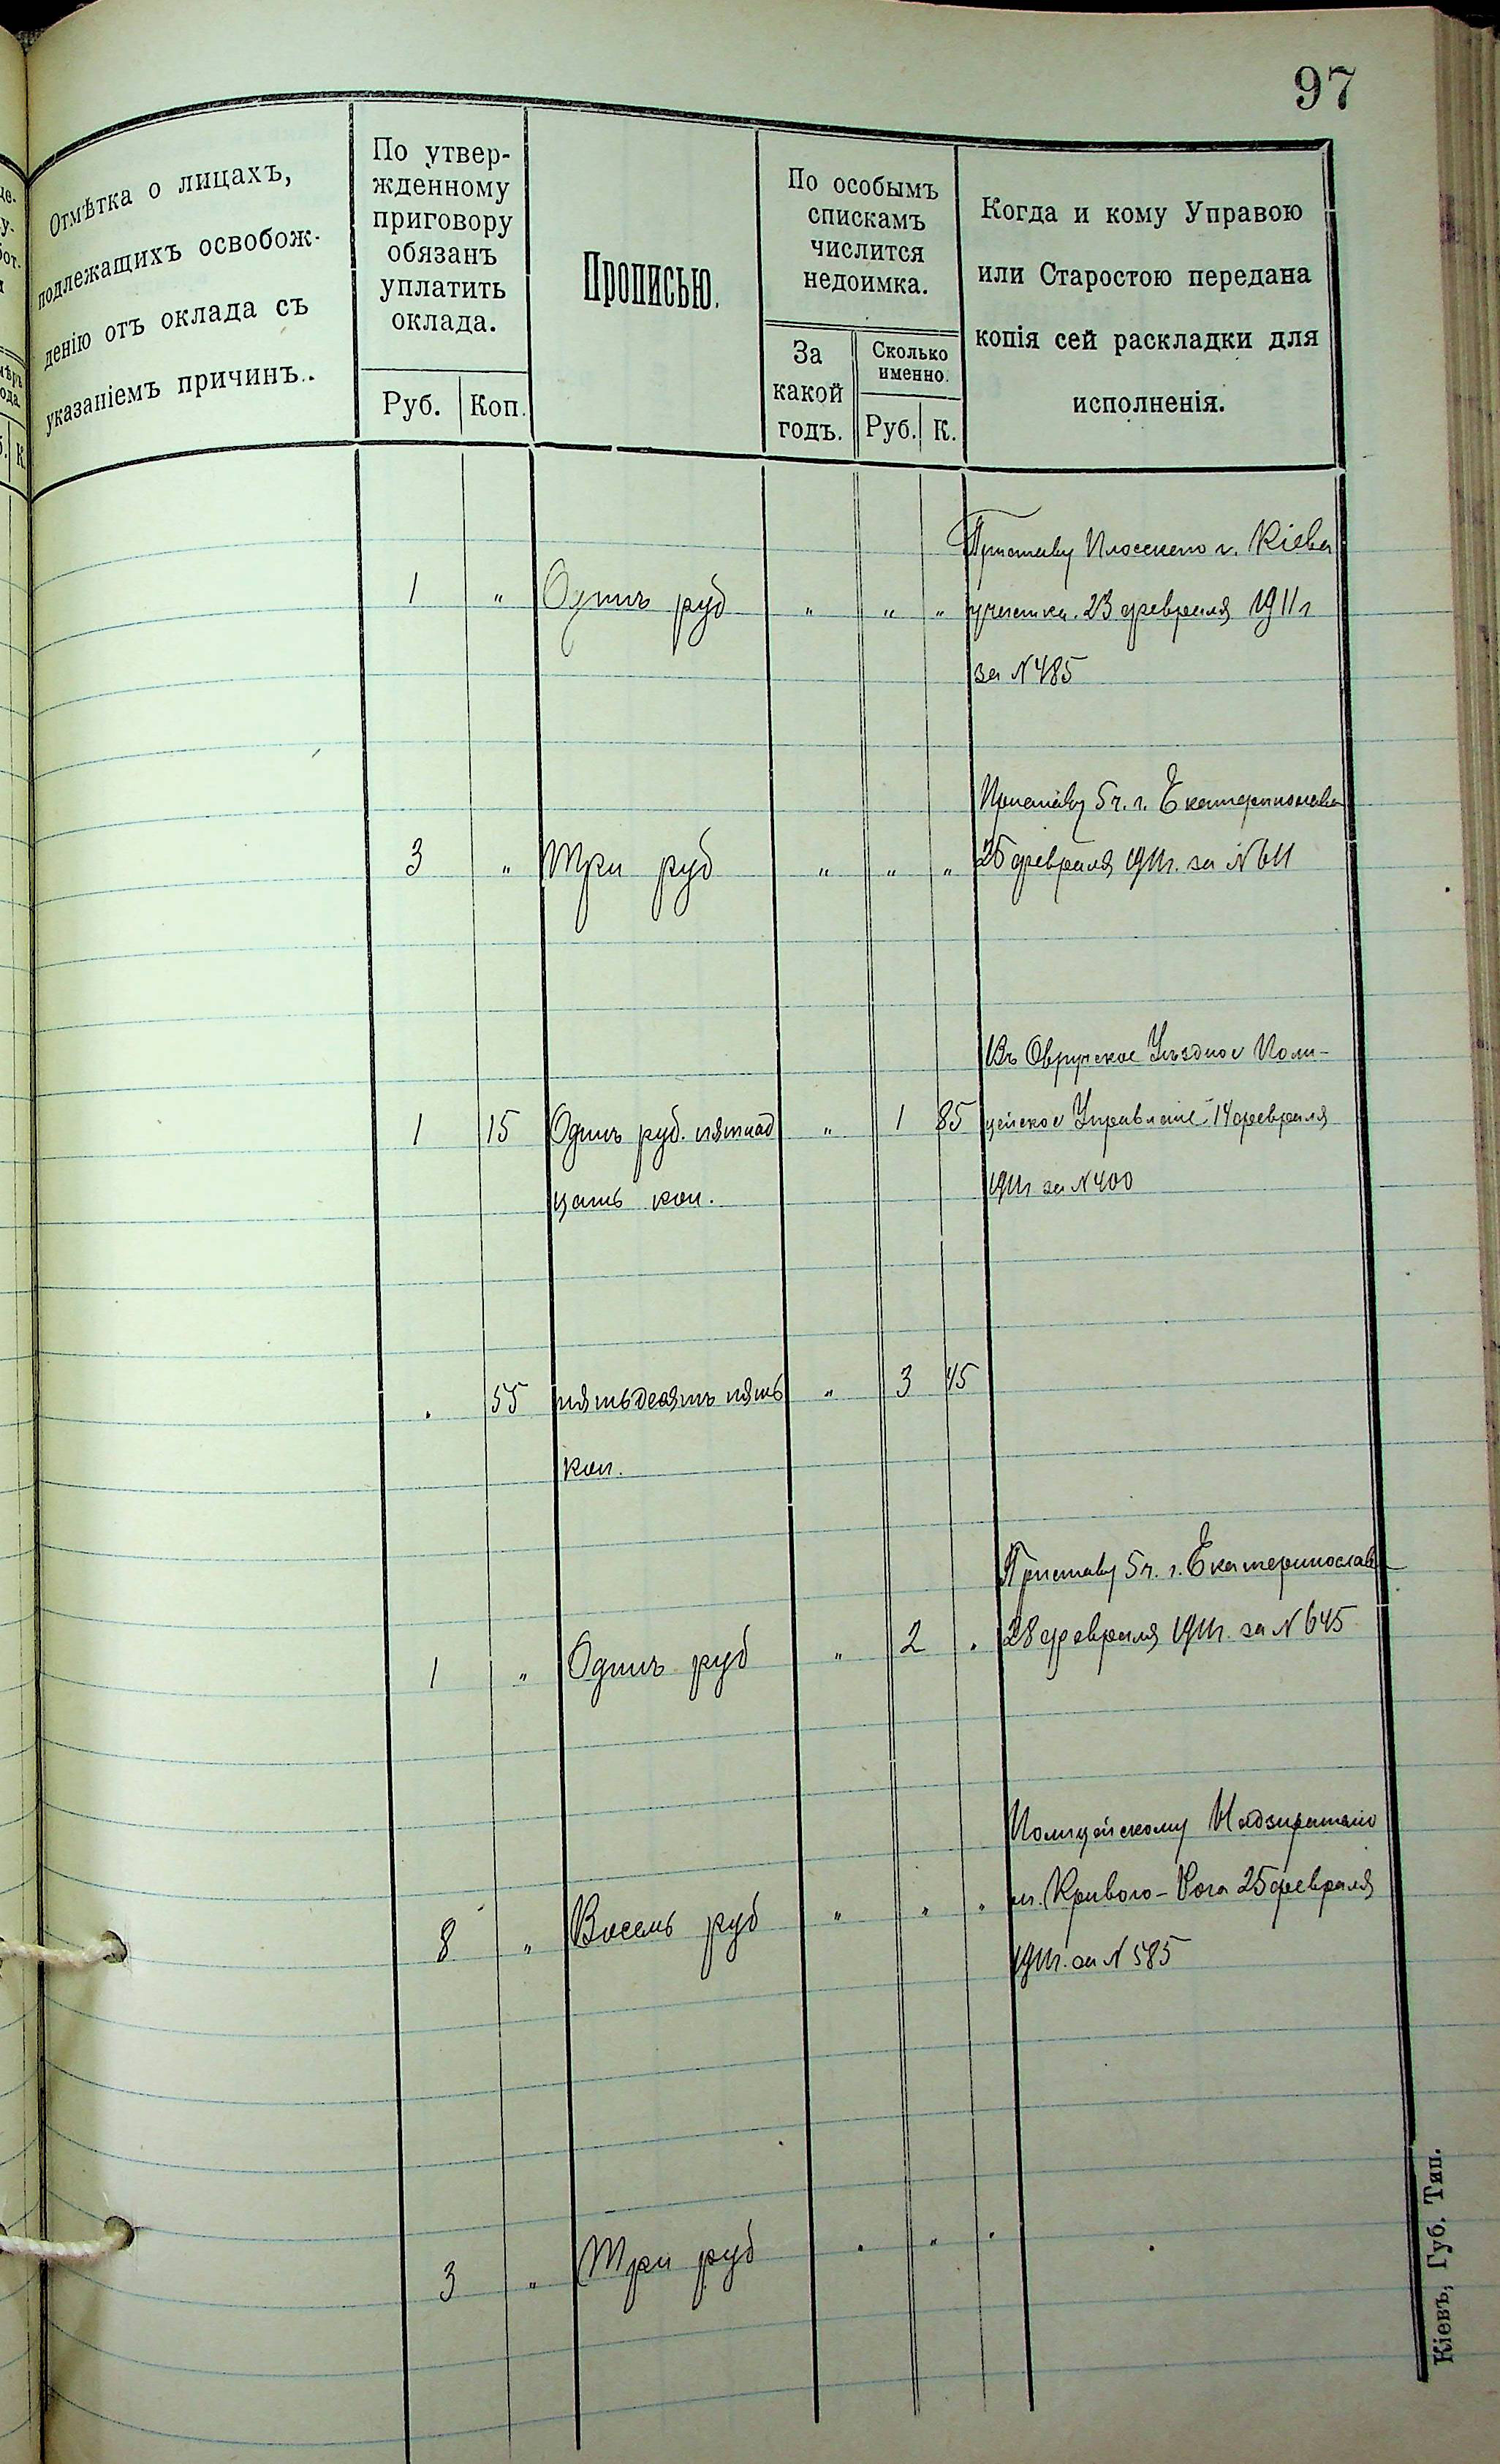 97
Отмѣтка о лицахъ,
подлежащихъ освобож-
денію отъ оклада съ
указаніемъ причинъ.
По утвер-
жденному
приговору
обязанъ
уплатить
оклада.
Руб. Коп.
Прописью.
По особымъ
спискамъ
числится
недоимка.
За
какой
годъ.
Сколько
именно.
Руб. К.
Когда и кому Управою
или Старостою передана
копія сей раскладки для
исполненія.
Приставу Плосскаго г. Кіева
1 " Одинъ руб " " " участка. 23 февраля 1911 г
за N 485
Приставу 5 ч. г. Екатеринослава
3 " Три руб " " " 25 февраля 1911г. за N 611
Въ Овручское Уѣздное Поли-
1 15 Одинъ руб. пятнад " 1 85 цейское Управленіе 14 февраля
цать коп. 1911г за N 400
. 55 пятьдесятъ пять " 3 45
коп.
Приставу 5 ч. г. Екатеринослава
1 " Одинъ руб " 2 . 28 февраля 1911г. за N 645
Полицейскому Надзирателю
8 " Восемь руб " " " м. Кривого-Рога 25 февраля
1911г. за N 585
3 " Три руб . " .
Кіевъ, Губ. Тип.